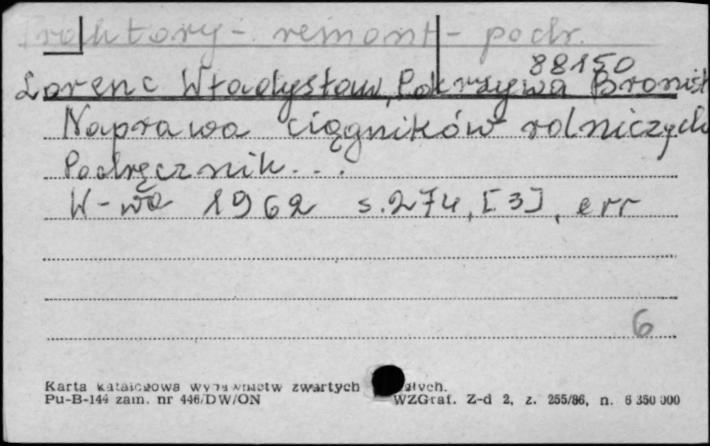 Traktory - remont - podr.
88150
Lorenc Władysław, Pokrzywa Bronisł
Naprawa ciągników rolniczych
Podręcznik...
W-wa 1962 s.274, [3], err
6
Karta katalogowa wydawnictw zwartych
Pu-B-144 zam. nr 446/DW/ON WZGraf. Z-d 2, z. 255/86, n. 6 350 000